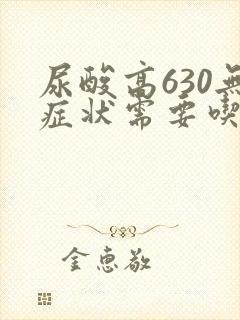 尿酸高630無
症状需要喫
金惠敬